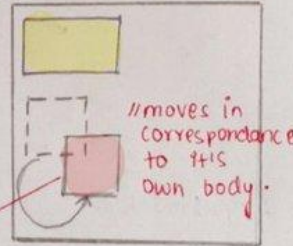 //moves in
correspondance
to it's
own body.